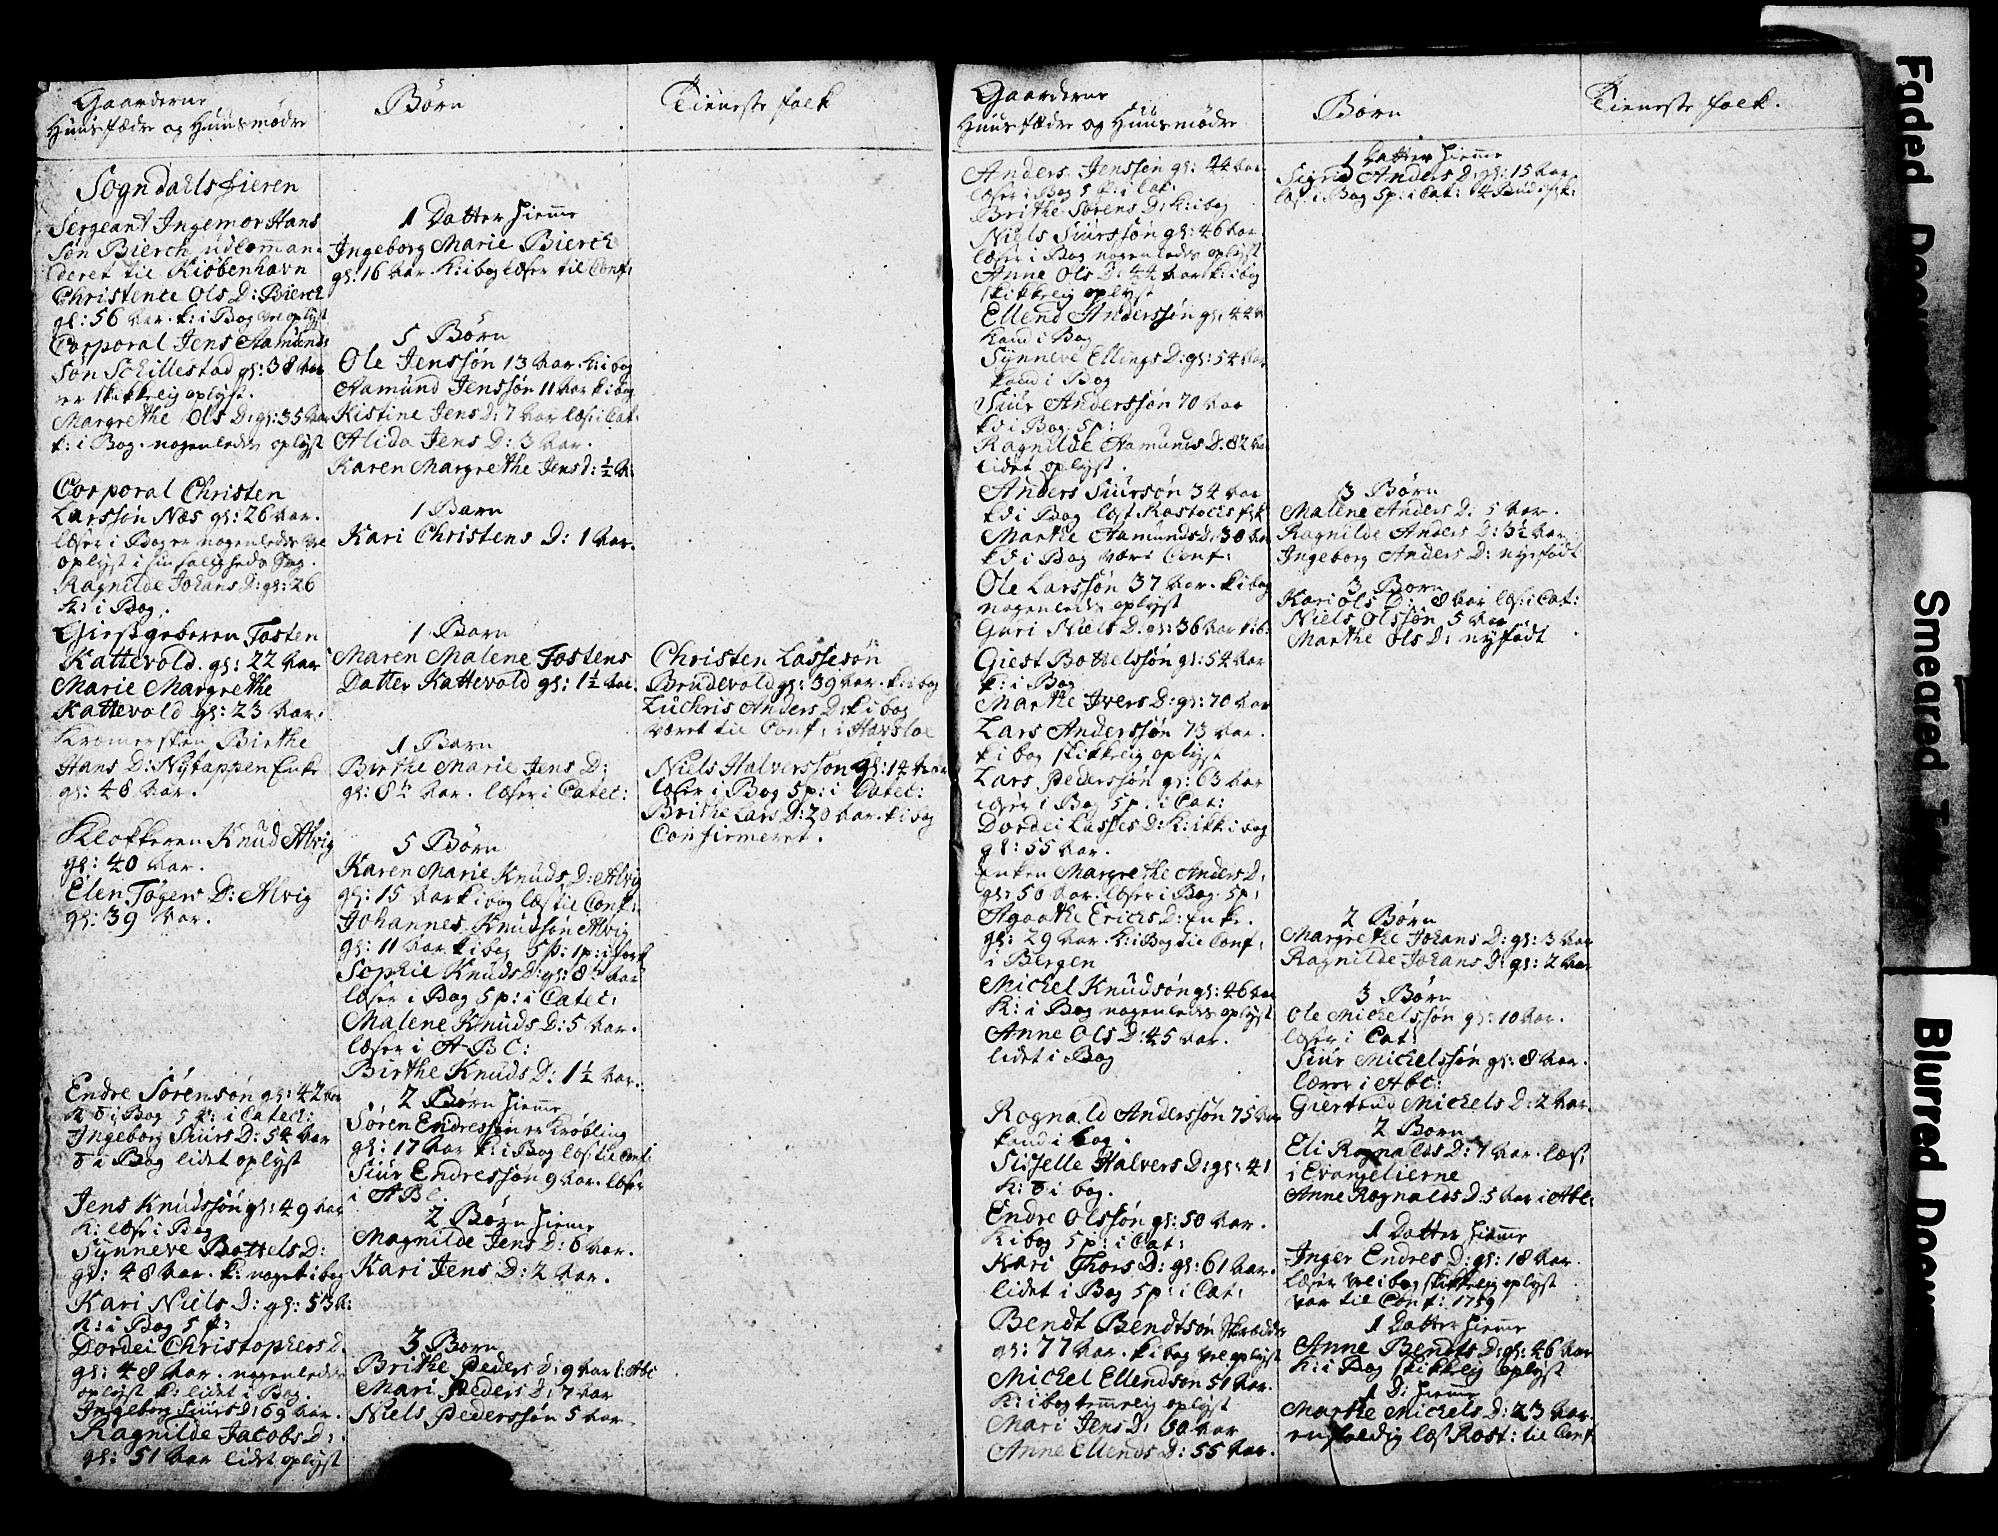 Gaarderne
Huusfædre og Huusmødre
Børn
Tieneste folk
Sogndahls fieren
Sergeant Ingemor Hans
Søn Bierch udcom̄an-
deret til Kiøbenhavn
Christence Ols D: Bierch
gl: 56 aar. k: i Bog vel oplyst
Corporal Jens Aamunds
Søn Schillestad gl: 38 aar
er skikkelig oplyst.
Margrethe Ols D: gl: 35 aar
k: i Bog. nogenledes oplyst
Corporal Christen
Larssøn Næs gl: 26 aar.
læser i Bog er nogenledes vel
oplyst i sin saligheds Sag.
Ragnilde Johans D: gl: 26
k: i Bog.
Giestgeberen Tosten
Kattevold. gl: 22 aar
Marie Margrethe
Kattevold gl: 23 aar.
Kræmersken Birthe
Hans D: Nytappen Enke
gl: 48 aar.
Klokkeren Knud Alvig
gl: 40 aar.
Elen Tøgers D: Alvig
gl: 39 aar.
Endre Sørensøn gl: 42 aar
k d i Bog 5 p: i Catec:
Ingeborg Siurs D: 54 aar
d i Bog lidet oplyst
Jens Knudssøn gl: 49 aar
k: læse i Bog
Synneve Bottels D:
gl: 48 aar. k: noget i bog
Kari Niels D: gl: 53 a:
k: i Bog 5 p:
Dordei Christophers D.
gl: 48 aar. nogenledes
oplyst k: lidet i Bog.
Ingeborg Siurs D: 69 aar.
Ragnilde Jacobs D:
gl: 51 aar lidet oplyst
1 Datter hiem̄e
Ingeborg Marie Bierch
gl: 16 aar. k: i bog læser til Conf:
5 Børn
Ole Jenssøn 13 aar. k: i bog
Aamund Jenssøn 11 aar k i bog
Kistine Jens D: 7 aar læs: i Cat.
Alida Jens D: 3 aar.
Karen Margrethe Jens d: ½ a:
1 Barn
Kari Christens D: 1 aar.
1 Barn
Maren Malene Tostens
Datter Kattevold gl: 1½ aar.
1 Barn
Birthe Marie Jens D:
gl: 8½ aar. læser i Catec:
5 Børn
Karen Marie Knuds D: Alvig
gl: 15 aar k i bog læs til Conf:
Johannes Knudssøn Alvig
gl: 11 aar k i bog 5 p: 1 p: i fork
Sophie Knuds D: gl: 8½ aar
læser i Bog 5 p: i Catec:
Malene Knuds D: 5 aar.
læser i ABC:
Birthe Knuds D: 1½ aar.
2 Børn hiem̄e
Søren Endressøn er Krøbling
gl: 17 aar k: i Bog læs: til Conf:
Siur Endressøn 9 aar. læser
i ABC.
2 Børn hiem̄e
Magnilde Jens D: 6 aar.
Kari Jens D: 2 aar.
3 Børn
Brithe Peders D: 9 aar i: Abc
Mari Peders D: 7 aar
Niels Pederssøn 5 aar.
Christen Lassesøn
Brudevold gl: 39 aar. k: i bog
Luchris Anders D: k i bog
været til Conf: i Hafsloe
Niels Halverssøn gl: 14 aar
læser i Bog 5 p: i Catec:
Brithe Lars D: 20 aar. k i bog
Confirmeret.
Gaarderne
Huusfædre og Huusmødre
Børn
Tieneste folk.
Anders Jenssøn gl: 44 aar
læser i Bog 5 p: i Cat:
Brithe Sørens D: k: i bog
Niels Siurssøn gl: 46 aar.
læser i Bog nogenleds oplyst
Anne Ols D: 44 aar k: i bog
skikkelig oplyst
Ellend Anderssøn gl: 44 a
kand i Bog
Synneve Ellings D: gl: 54 aar
kand i Bog
Siur Anderssøn 70 aar
kd i Bog. 5 p:
Ragnilde Aamunds D: 82 aar
lidet oplyst.
Anders Siursøn 34 aar
kd i Bog læst Rostocks fork
Marthe Aamunds D: 30 aar
kd i Bog været Conf:
Ole Larssøn 37 aar. k i bog
nogenleds oplyst
Guri Niels D. gl: 36 aar k i b:
Giest Bottelssøn gl: 54 aar
k: i Bog
Marthe Ivers D: gl: 70 aar
Lars Anderssøn 73 aar.
k i bog skikkelig oplyst
Lars Pederssøn gl: 63 aar
læser i Bog 5 p. i Cat:
Dordei Lasses D: k: ikk: i bog
gl: 55 aar.
Enken Margrethe Anders D:
gl: 50 aar. læser i Bog. 5 p:
Agaathe Erichs D: Enke.
gl: 29 aar. k: i Bog til Conf:
i Bergen
Michel Knudsøn gl: 46 aar
k: i Bog nogenleds oplyst
Anne Ols D: 45 aar.
lidet i Bog
Rognald Anderssøn 75 aar
kand i bog.
Sisselle Halvers D: gl: 41
k: d i bog.
Endre Olssøn gl: 50 aar.
k i bog 5 p: i Cat:
Kari Thors D: gl: 61 aar.
lidet i Bog 5 p: i Cat:
Bendt Bendtsøn
gl: 77 aar. k i bog vel oplyst
Michel Ellendsøn 51 aar.
k: i bog temelig oplyst
Mari Jens D: 60 aar
Anne Ellends D: 55 aar.
1 Datter hiem̄e
Sigrid Anders D: gl: 15 aar
læs: i Bog 5 p: i Cat: 4 Bud i fork:
3 Børn
Malene Anders D: 5 aar.
Ragnilde Anders D: 3½ aar
Ingeborg Anders D: nyefødt
3 Børn
Kari Ols D: 8 aar læs: i Cat:
Niels Olssøn 5 aar
Marthe Ols D: nyfødt
2 Børn
Margrethe Johans D: gl: 3 aar
Ragnilde Johans D: gl: 2 aar
3 Børn
Ole Michelssøn gl: 10 aar.
læser i Cat:
Siur Michelssøn gl: 8 aar.
lærer i Abc:
Giertrud Michels D: 2 aar.
2 Børn
Eli Rognalds D: 7 aar. læs:
i Evangelierne
Anne Rognalds D: 5 aar i Abc:
1 Datter hiem̄e
Inger Endres D: gl: 18 aar.
læser vel i bog skikkelig oplyst
var til Conf: 1759
1 Datter hiem̄e
Anne Bendts D: gl: 46 aar
k: i Bog skikkelig oplyst
1 D: hiem̄e
Marthe Michels D: 23 aar.
enfoldig læs Rost: til Conf
Faded Docu
Smeared
Blurred Docum